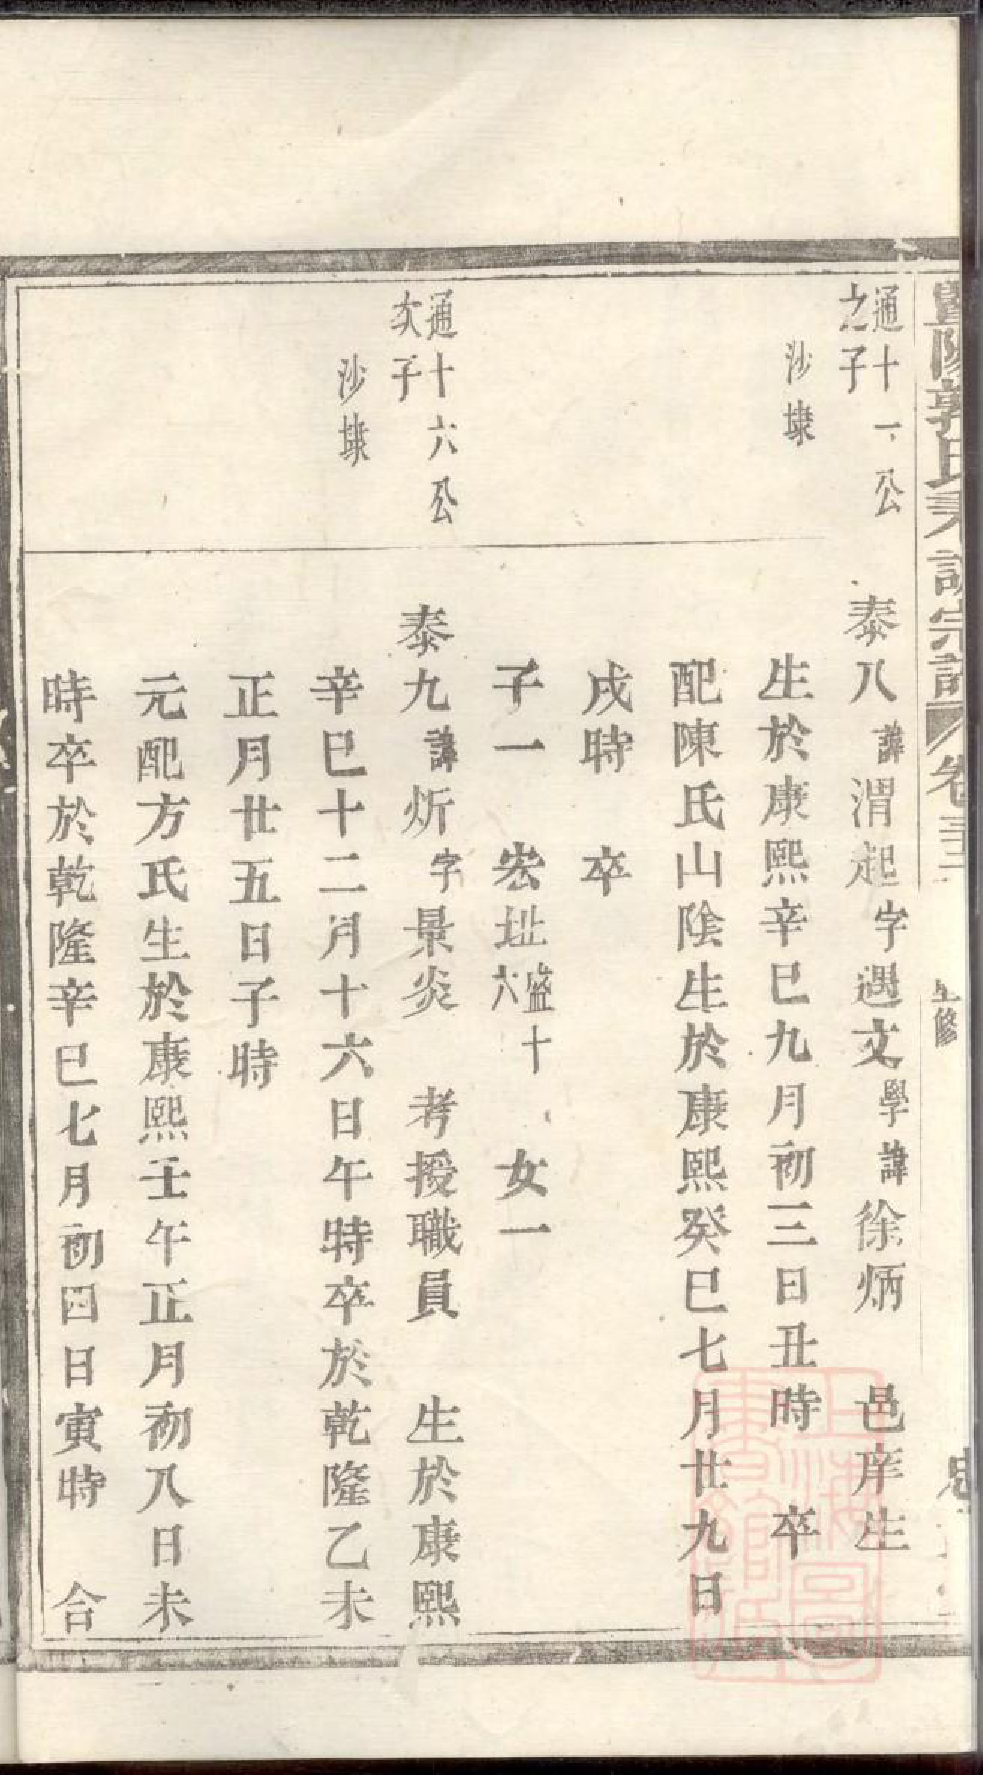 暨陽郭氏 宗譜 卷三
通十一公
之子
沙埭
泰八諱渭起字遇文學諱徐炳 邑庠生
生於康熙辛巳九月初三日丑時 卒
配陳氏山陰生於康熙癸巳七月廿九日
戌時 卒
子一 宏址盛十六 女一
通十六公
次子
沙埭
泰九諱炘字景炎 考授職員 生於康熙
辛巳十二月十六日午時卒於乾隆乙未
正月廿五日子時
元配方氏生於康熙壬午正月初八日未
時卒於乾隆辛巳七月初四日寅時 合
上海圖書館藏